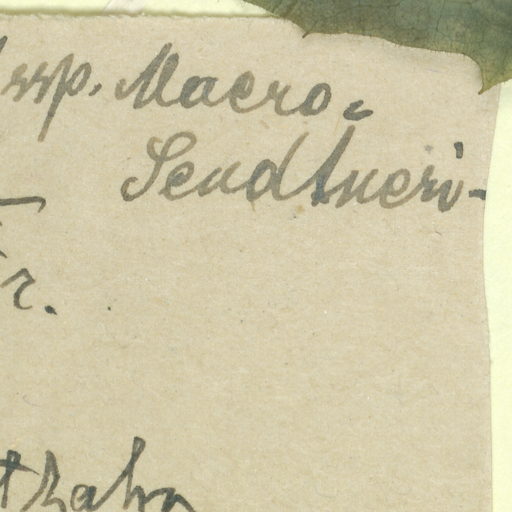 ssp. Macro-
Sendtneri-
r.
Zahn